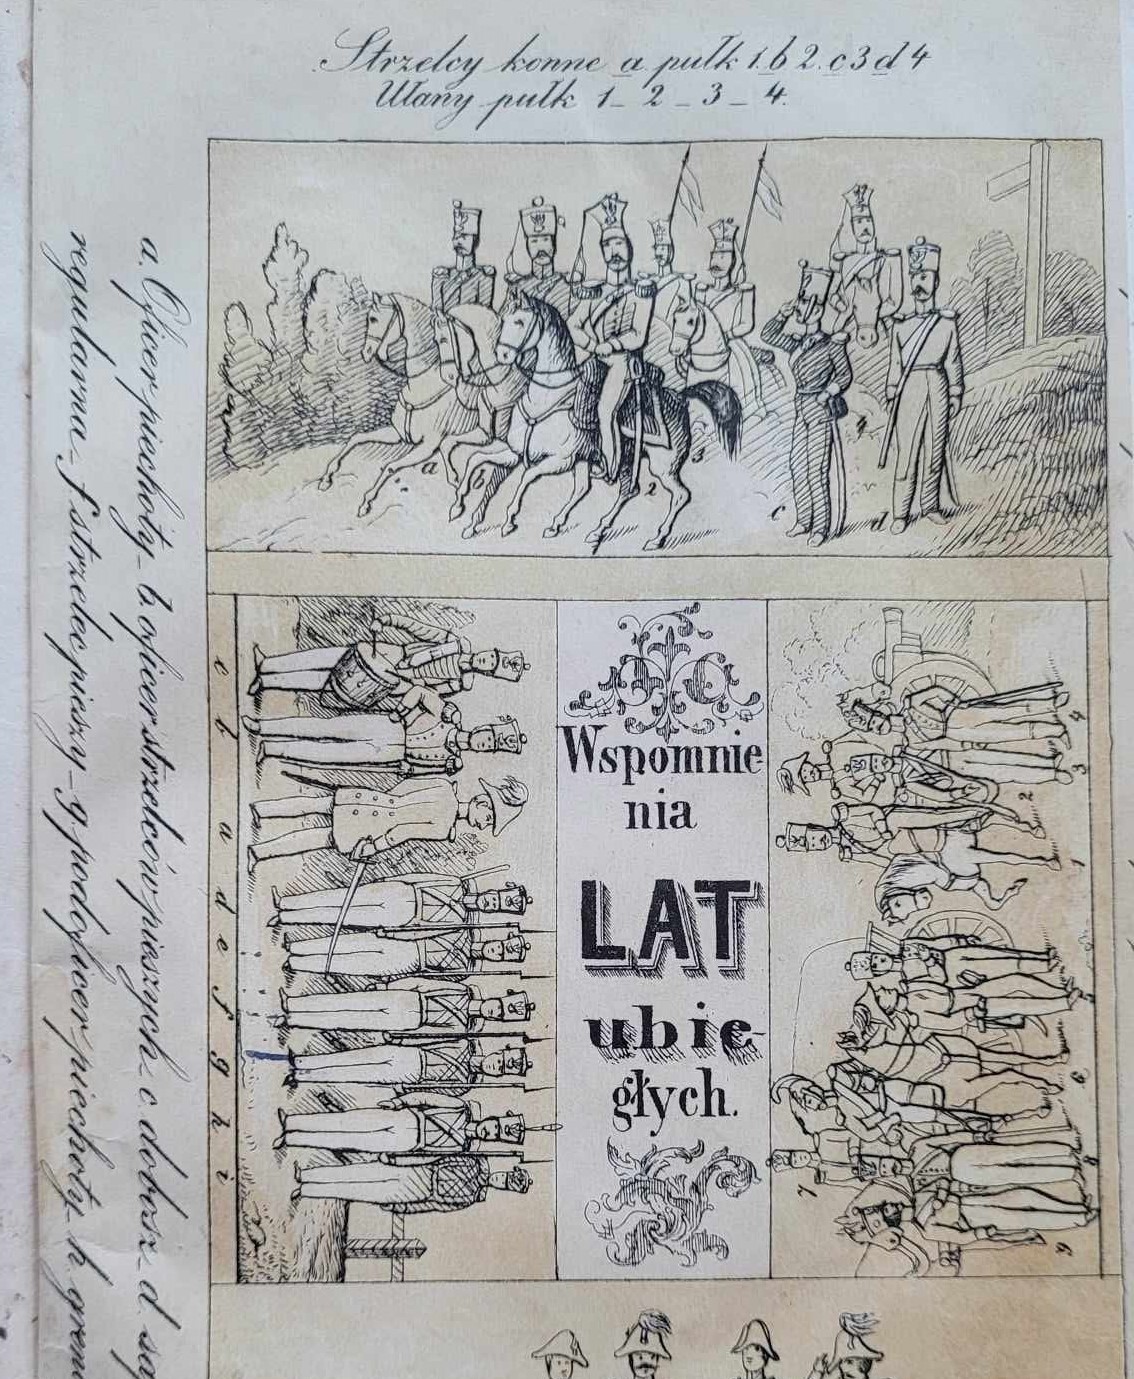 Strzelcy konne a pułk 1. b 2. c 3 d 4
Ułany pułk 1 _ 2 _ 3 _ 4.
a b 1 2 3 4 c d
Wspomnie
nia
LAT
ubie-
głych.
c b a d e f g h i
1 2 3 4 5 6 7 8 9
a. Oficer piechoty _ b. oficer strzelców pieszych _ c. dobosz _ d. sap
regularna _ f strzelec pieszy _ g podoficer piechoty _ h. gren